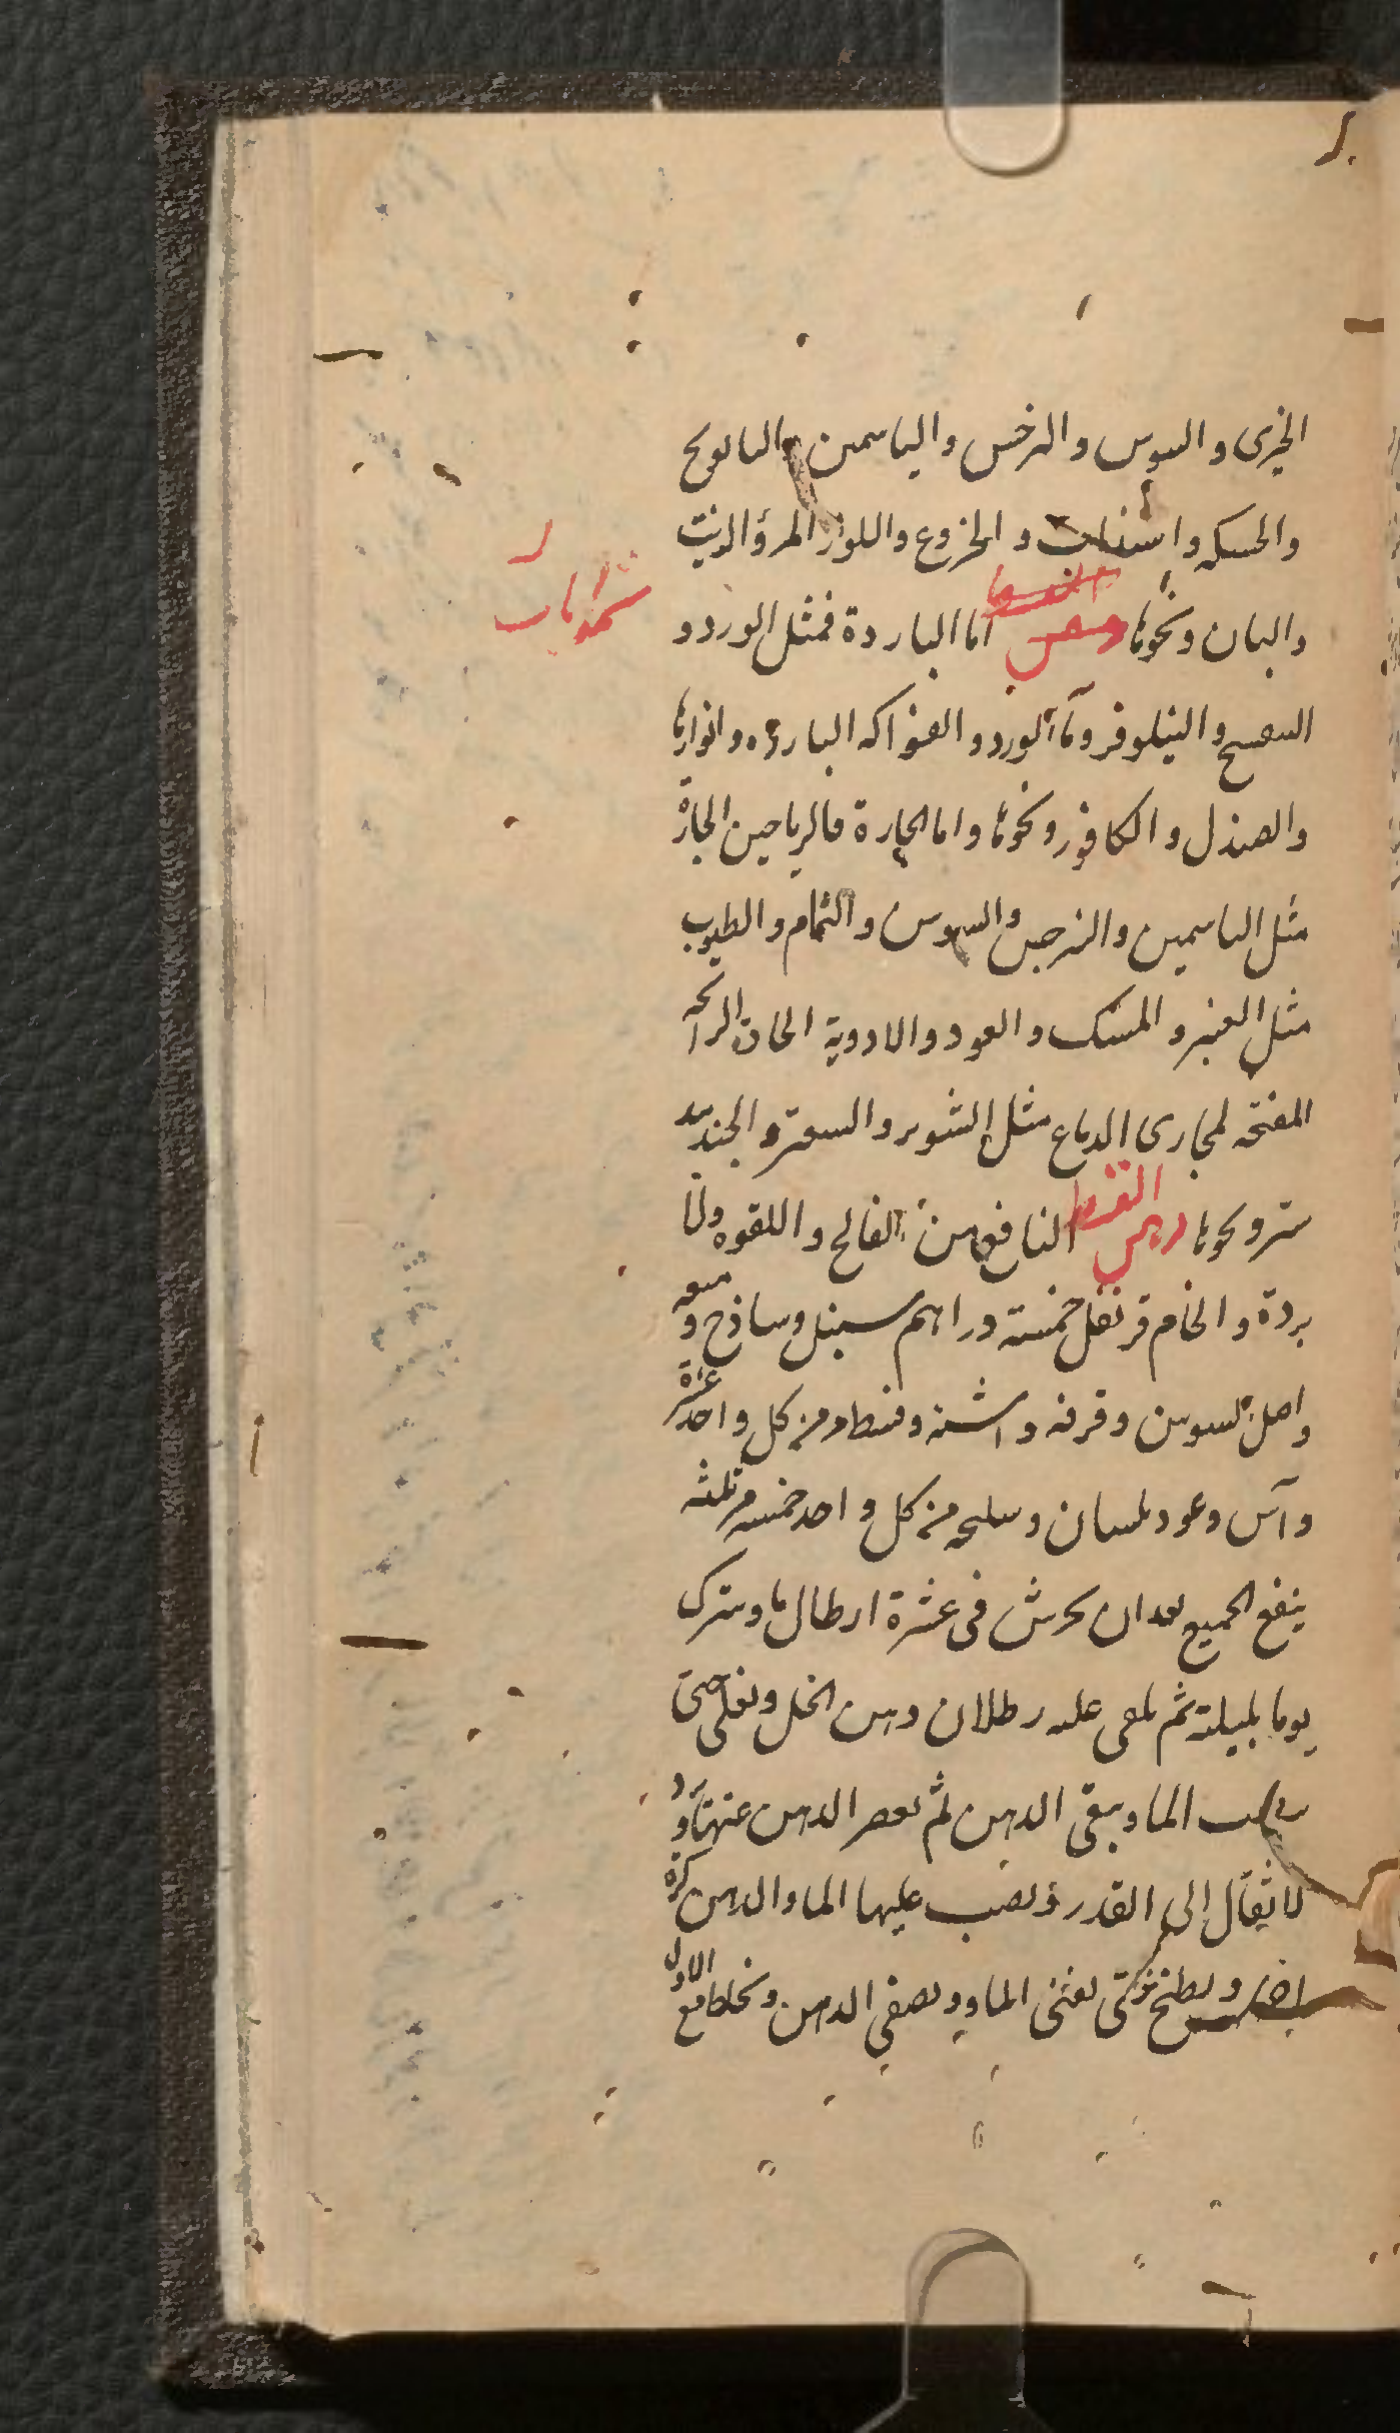 الخيرى والسوسن والنرجس والياسمين والبابونج
والحسك و والخروع واللوز المر والزيت
شمومات
والبان ونحوها اما الباردة فمثل الورد و
البنفسج والنيلوفر وماء الورد والفواكه الباردة وانوارها
والصندل والكافور ونحوها واما الحارة فالرياحين الحارة
مثل الياسمين والنرجس والسوسن والنمام والطيوب
مثل العنبر والمسك والعود والادوية الحادة الرائحه
المفتحه لمجارى الدماغ مثل الشونيز والسعتر والجندبيد
ستر ونحوها دهن القسط النافع من الفالج واللقوه
بردة والخام قرنفل خمسة دراهم سنبل وساذج و ميعه
واصل السوسن وقرفه واشنه وقسط مر من كل واحد عشرة
وآس وعود بلسان وسليخه من كل واحد خمسه مر ثلثه
ينقع الجميع بعد ان يجرش فى عشرة ارطال ما ويترك
يوما بليلته ثم يلقى عليه رطلان دهن الخل ويغلى حتى
يذهب الما ويبقى الدهن ثم يعصر الدهن عنها ويرد
الاثفال الى القدر ويصب عليها الما والدهن كرة
اخرى ويطبخ حتى يفنى الما ويصفى الدهن ويخلط مع الاول